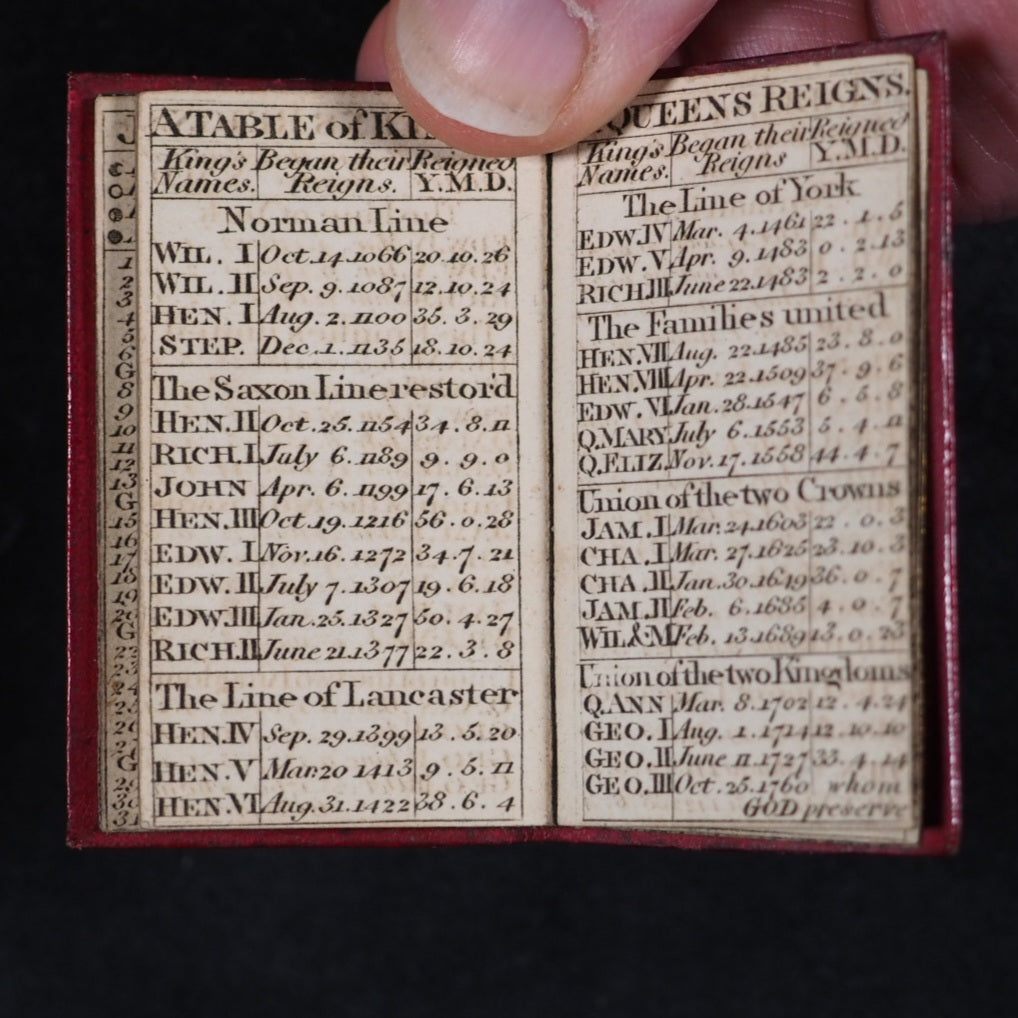 A TABLE of KI
King's Began their Reigned
Names. Reigns. Y.M.D.
Norman Line
WIL. I Oct.14.1066 20.10.26
WIL. II Sep. 9.1087 12.10.24
HEN. I Aug. 2.1100 35. 3. 29
STEP. Dec.1.1135 18.10.24
The Saxon Line restor'd
HEN. II Oct.25.1154 34.8.11
RICH. I July 6.1189 9.9.0
JOHN Apr. 6.1199 17.6.13
HEN. III Oct.19.1216 56.0.28
EDW. I Nov.16.1272 34.7.21
EDW. II July 7.1307 19.6.18
EDW. III Jan.25.1327 50.4.27
RICH. II June 21.1377 22.3.8
The Line of Lancaster
HEN. IV Sep. 29.1399 13.5.20
HEN. V Mar.20 1413 9.5.11
HEN. VI Aug.31.1422 38.6.4
QUEENS REIGNS.
King's Began their Reigned
Names. Reigns Y.M.D.
The Line of York
EDW. IV Mar. 4.1461 22.1.5
EDW. V Apr. 9.1483 0.2.13
RICH. III June 22.1483 2.2.0
The Families united
HEN. VII Aug. 22.1485 23.8.0
HEN. VIII Apr. 22.1509 37.9.6
EDW. VI Jan.28.1547 6.5.8
Q.MARY July 6.1553 5.4.11
Q.ELIZ. Nov.17.1558 44.4.7
Union of the two Crowns
JAM. I Mar.24.1603 22.0.3
CHA. I Mar. 27.1625 23.10.3
CHA. II Jan.30.1649 36.0.7
JAM. II Feb. 6.1685 4.0.7
WIL&M Feb. 13.1689 13.0.23
Union of the two Kingdoms
Q.ANN Mar. 8.1702 12.4.24
GEO. I Aug. 1.1714 12.10.10
GEO. II June 11.1727 33.4.14
GEO. III Oct. 25.1760 whom
GOD preserve